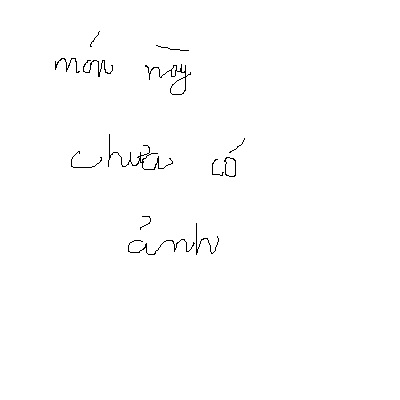 món này
chưa có
ảnh